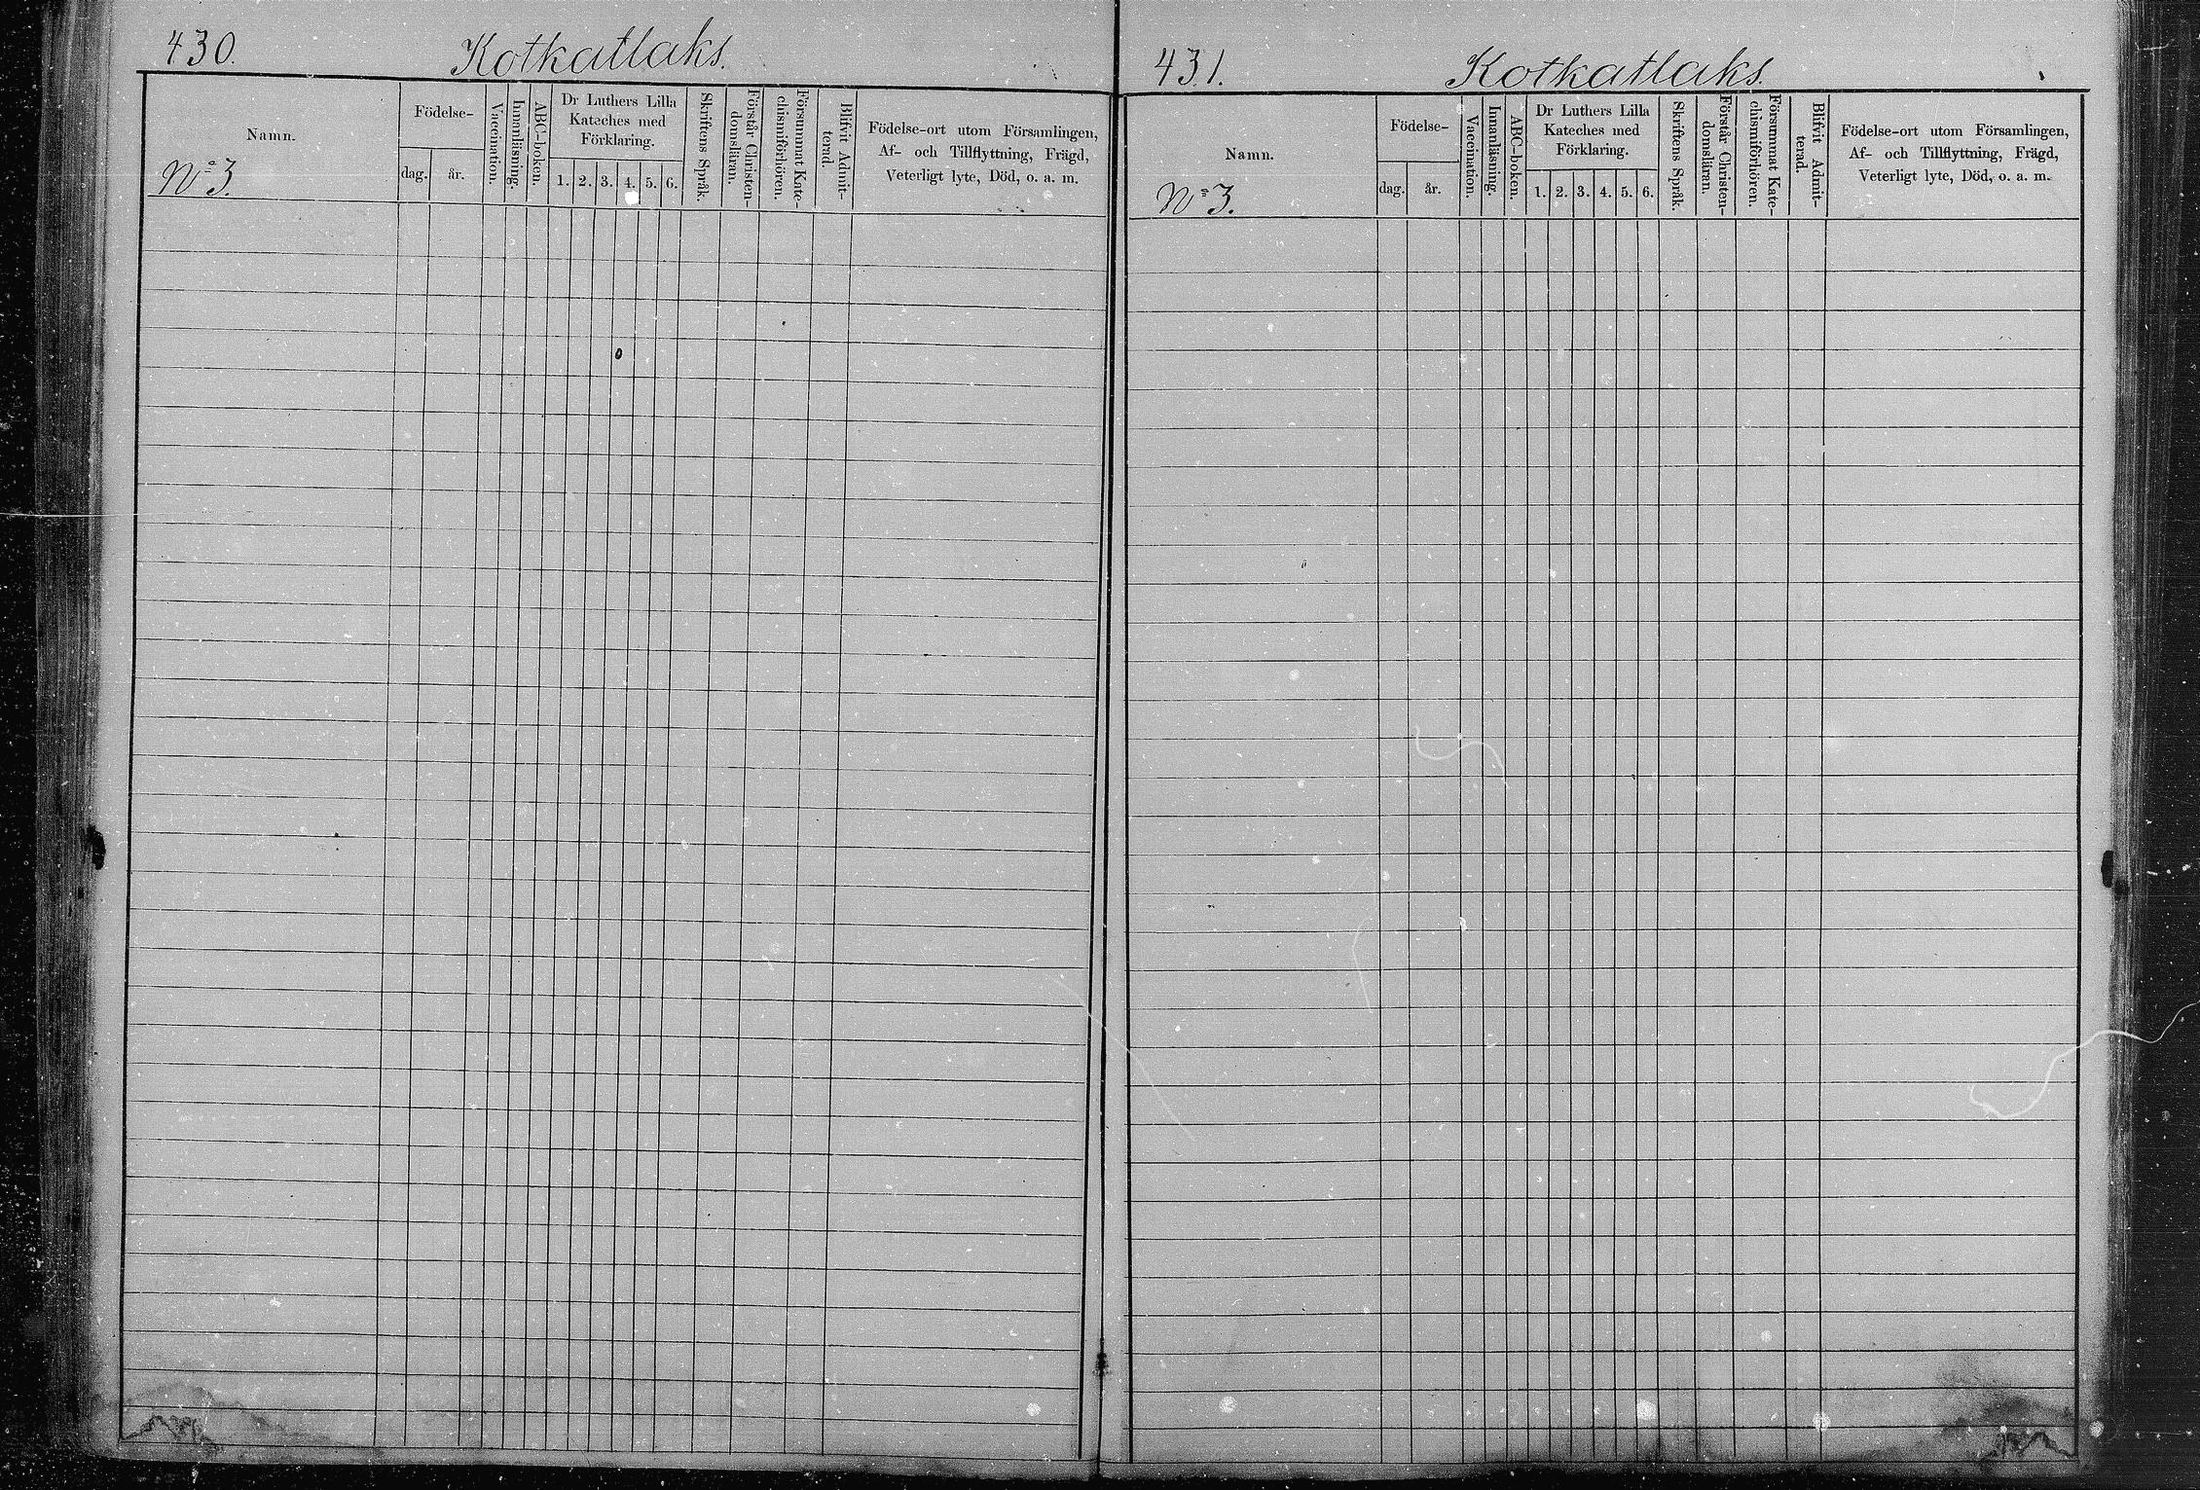 430.
Kotkatlaks.
Namn.
No 3.
Födelse-
dag. år.
Vaccination.
Innanläsning.
ABC-boken.
Dr Luthers Lilla
Kateches med
Förklaring.
1. 2. 3. 4. 5. 6.
Skriftens Språk.
Förstår Christen-
domsläran.
Försummat Kate-
chismiförhören.
Blifvit Admit-
terad.
Födelse-ort utom Församlingen,
Af- och Tillflyttning, Frägd,
Veterligt lyte, Död, o. a. m.
431.
Kotkatlaks.
Namn.
No 3.
Födelse-
dag. år.
Vaccination.
Innanläsning.
ABC-boken.
Dr Luthers Lilla
Kateches med
Förklaring.
1. 2. 3. 4. 5. 6.
Skriftens Språk.
Förstår Christen-
domsläran.
Försummat Kate-
chismiförhören.
Blifvit Admit-
terad.
Födelse-ort utom Församlingen,
Af- och Tillflyttning, Frägd,
Veterligt lyte, Död, o. a. m.